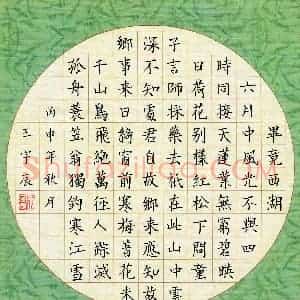 畢竟西湖
六月中風光不與四
時同接天蓮葉無窮碧映
日荷花別樣紅松下問童
子言師採藥去祇在此山中雲
深不知處君自故鄉來應知故
鄉事來日綺窗前寒梅著花未
千山鳥飛絕萬徑人踪滅
孤舟蓑笠翁獨釣寒江雪
丙申年秋月